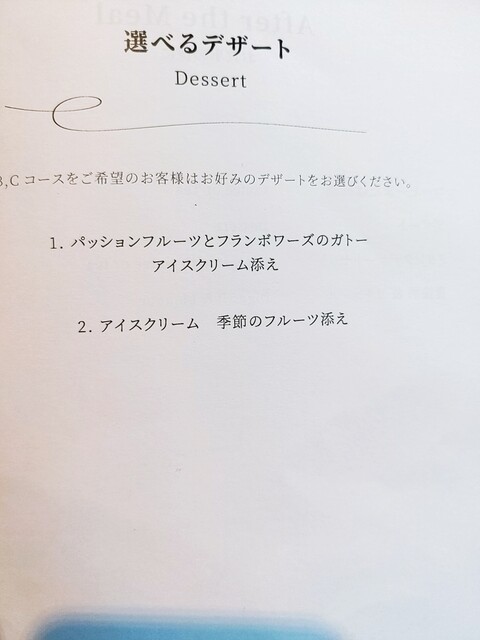 選べるデザート
Dessert
B,Cコースをご希望のお客様はお好みのデザートをお選びください。
1. パッションフルーツとフランボワーズのガトー
アイスクリーム添え
2. アイスクリーム　季節のフルーツ添え